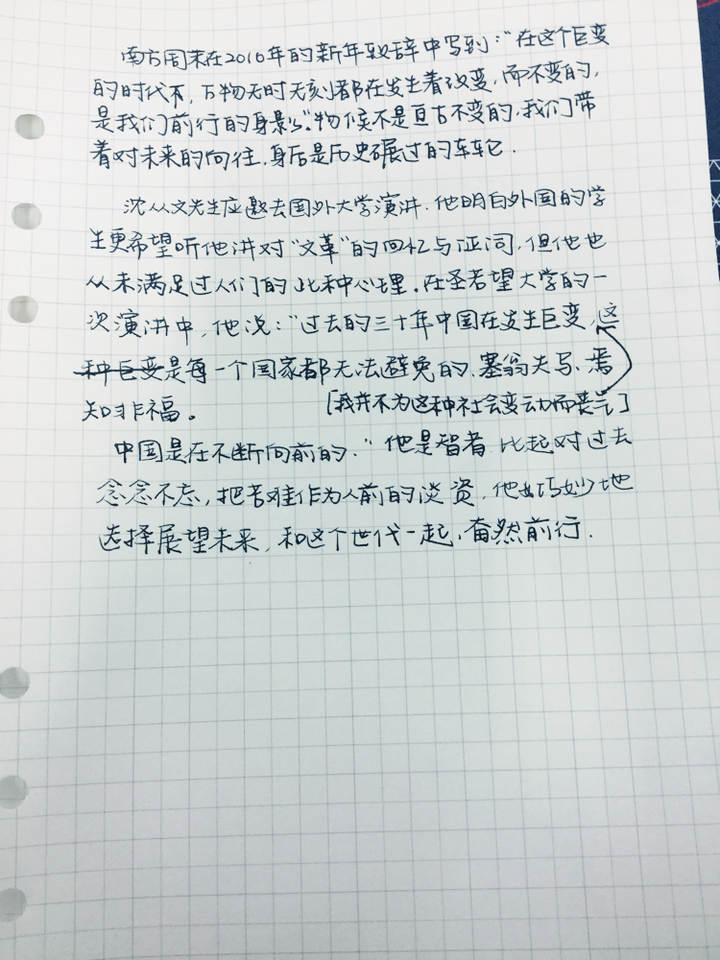 南方周末在2010年的新年致辞中写到：“在这个巨变
的时代下，万物无时无刻都在发生着改变，而不变的，
是我们前行的身影”。物候不是亘古不变的，我们带
着对未来的向往，身后是历史碾过的车轮。
沈从文先生应邀去国外大学演讲，他明白外国的学
生更希望听他讲对“文革”的回忆与证词，但他也
从未满足过人们的此种心理。在圣若望大学的一
次演讲中，他说：“过去的三十年中国在发生巨变，这
种巨变是每一个国家都无法避免的，塞翁失马，焉
知非福。 [我并不为这种社会变动而丧气]
中国是在不断向前的。”他是智者，比起对过去
念念不忘，把苦难作为人前的谈资，他巧妙地
选择展望未来，和这个世代一起，奋然前行.